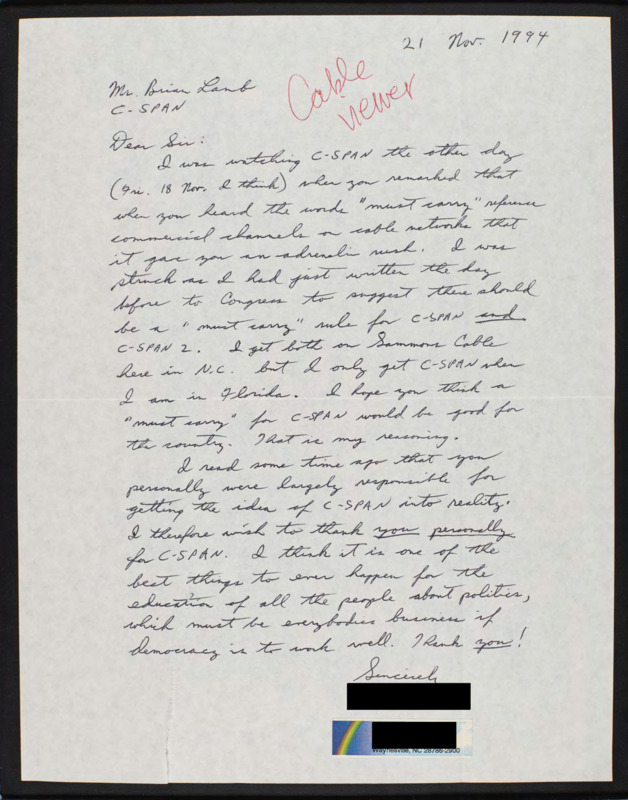 21 Nov. 1994
Cable
viewer
Mr. Brian Lamb
C-SPAN
Dear Sir:
I was watching C-SPAN the other day
(Fri. 18 Nov. I think) when you remarked that
when you heard the words "must carry" reference
commercial channels on cable networks that
it gav you an adrenalin rush. I was
struck as I had just written the day
before to Congress to suggest there should
be a "must carry" rule for C-SPAN and
C-SPAN 2. I get both on Sammons Cable
here in N.C. but I only get C-SPAN when
I am in Florida. I hope you think a
"must carry" for C-SPAN would be good for
the country. That is my reasoning.
I read some time ago that you
personally were largely responsible for
getting the idea of C-SPAN into reality.
I therefore wish to thank you personally
for C-SPAN. I think it is one of the
best things to ever happen for the
education of all the people about politics,
which must be everybodies business if
democracy is to work well. Thank you!
Sincerely
Waynesville, NC 28786-2900